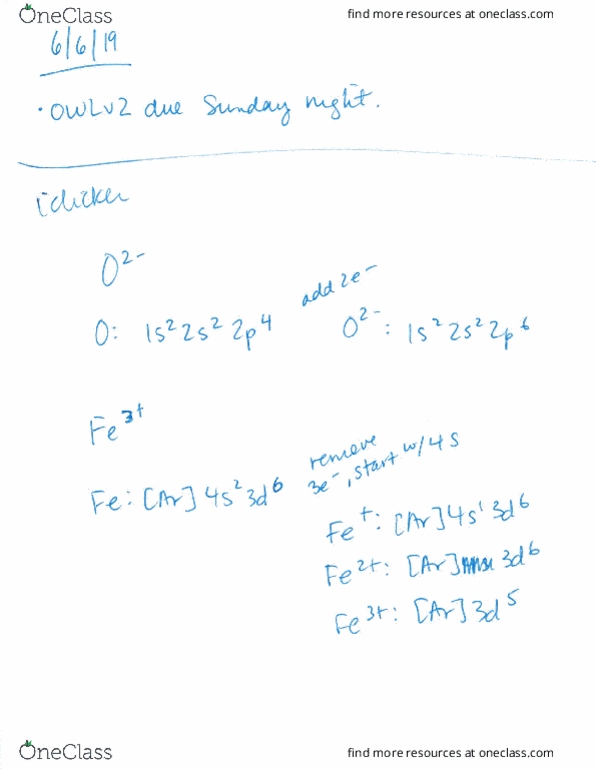 OneClass
find more resources at oneclass.com
6/6/19
• OWLv2 due Sunday night.
iclicker
O²⁻
add 2e⁻
O: 1s² 2s² 2p⁴
O²⁻: 1s² 2s² 2p⁶
Fe³⁺
remove
3e⁻, start w/ 4s
Fe: [Ar] 4s² 3d⁶
Fe⁺: [Ar] 4s¹ 3d⁶
Fe²⁺: [Ar] 3d⁶
Fe³⁺: [Ar] 3d⁵
OneClass
find more resources at oneclass.com